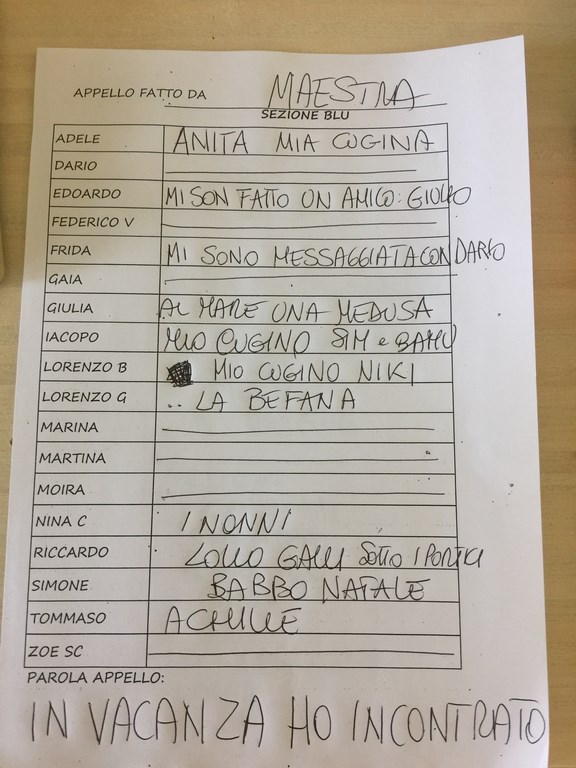 APPELLO FATTO DA MAESTRA
SEZIONE BLU
ADELE ANITA MIA CUGINA
DARIO
EDOARDO MI SON FATTO UN AMICO: GIULIO
FEDERICO V
FRIDA MI SONO MESSAGGIATA CON DARIO
GAIA
GIULIA AL MARE UNA MEDUSA
IACOPO MIO CUGINO SIM e
LORENZO B MIO CUGINO NIKI
LORENZO G .. LA BEFANA
MARINA
MARTINA
MOIRA
NINA C I NONNI
RICCARDO LOLLO GALLI SOTTO I PORTICI
SIMONE BABBO NATALE
TOMMASO ACHILLE
ZOE SC
PAROLA APPELLO:
IN VACANZA HO INCONTRATO